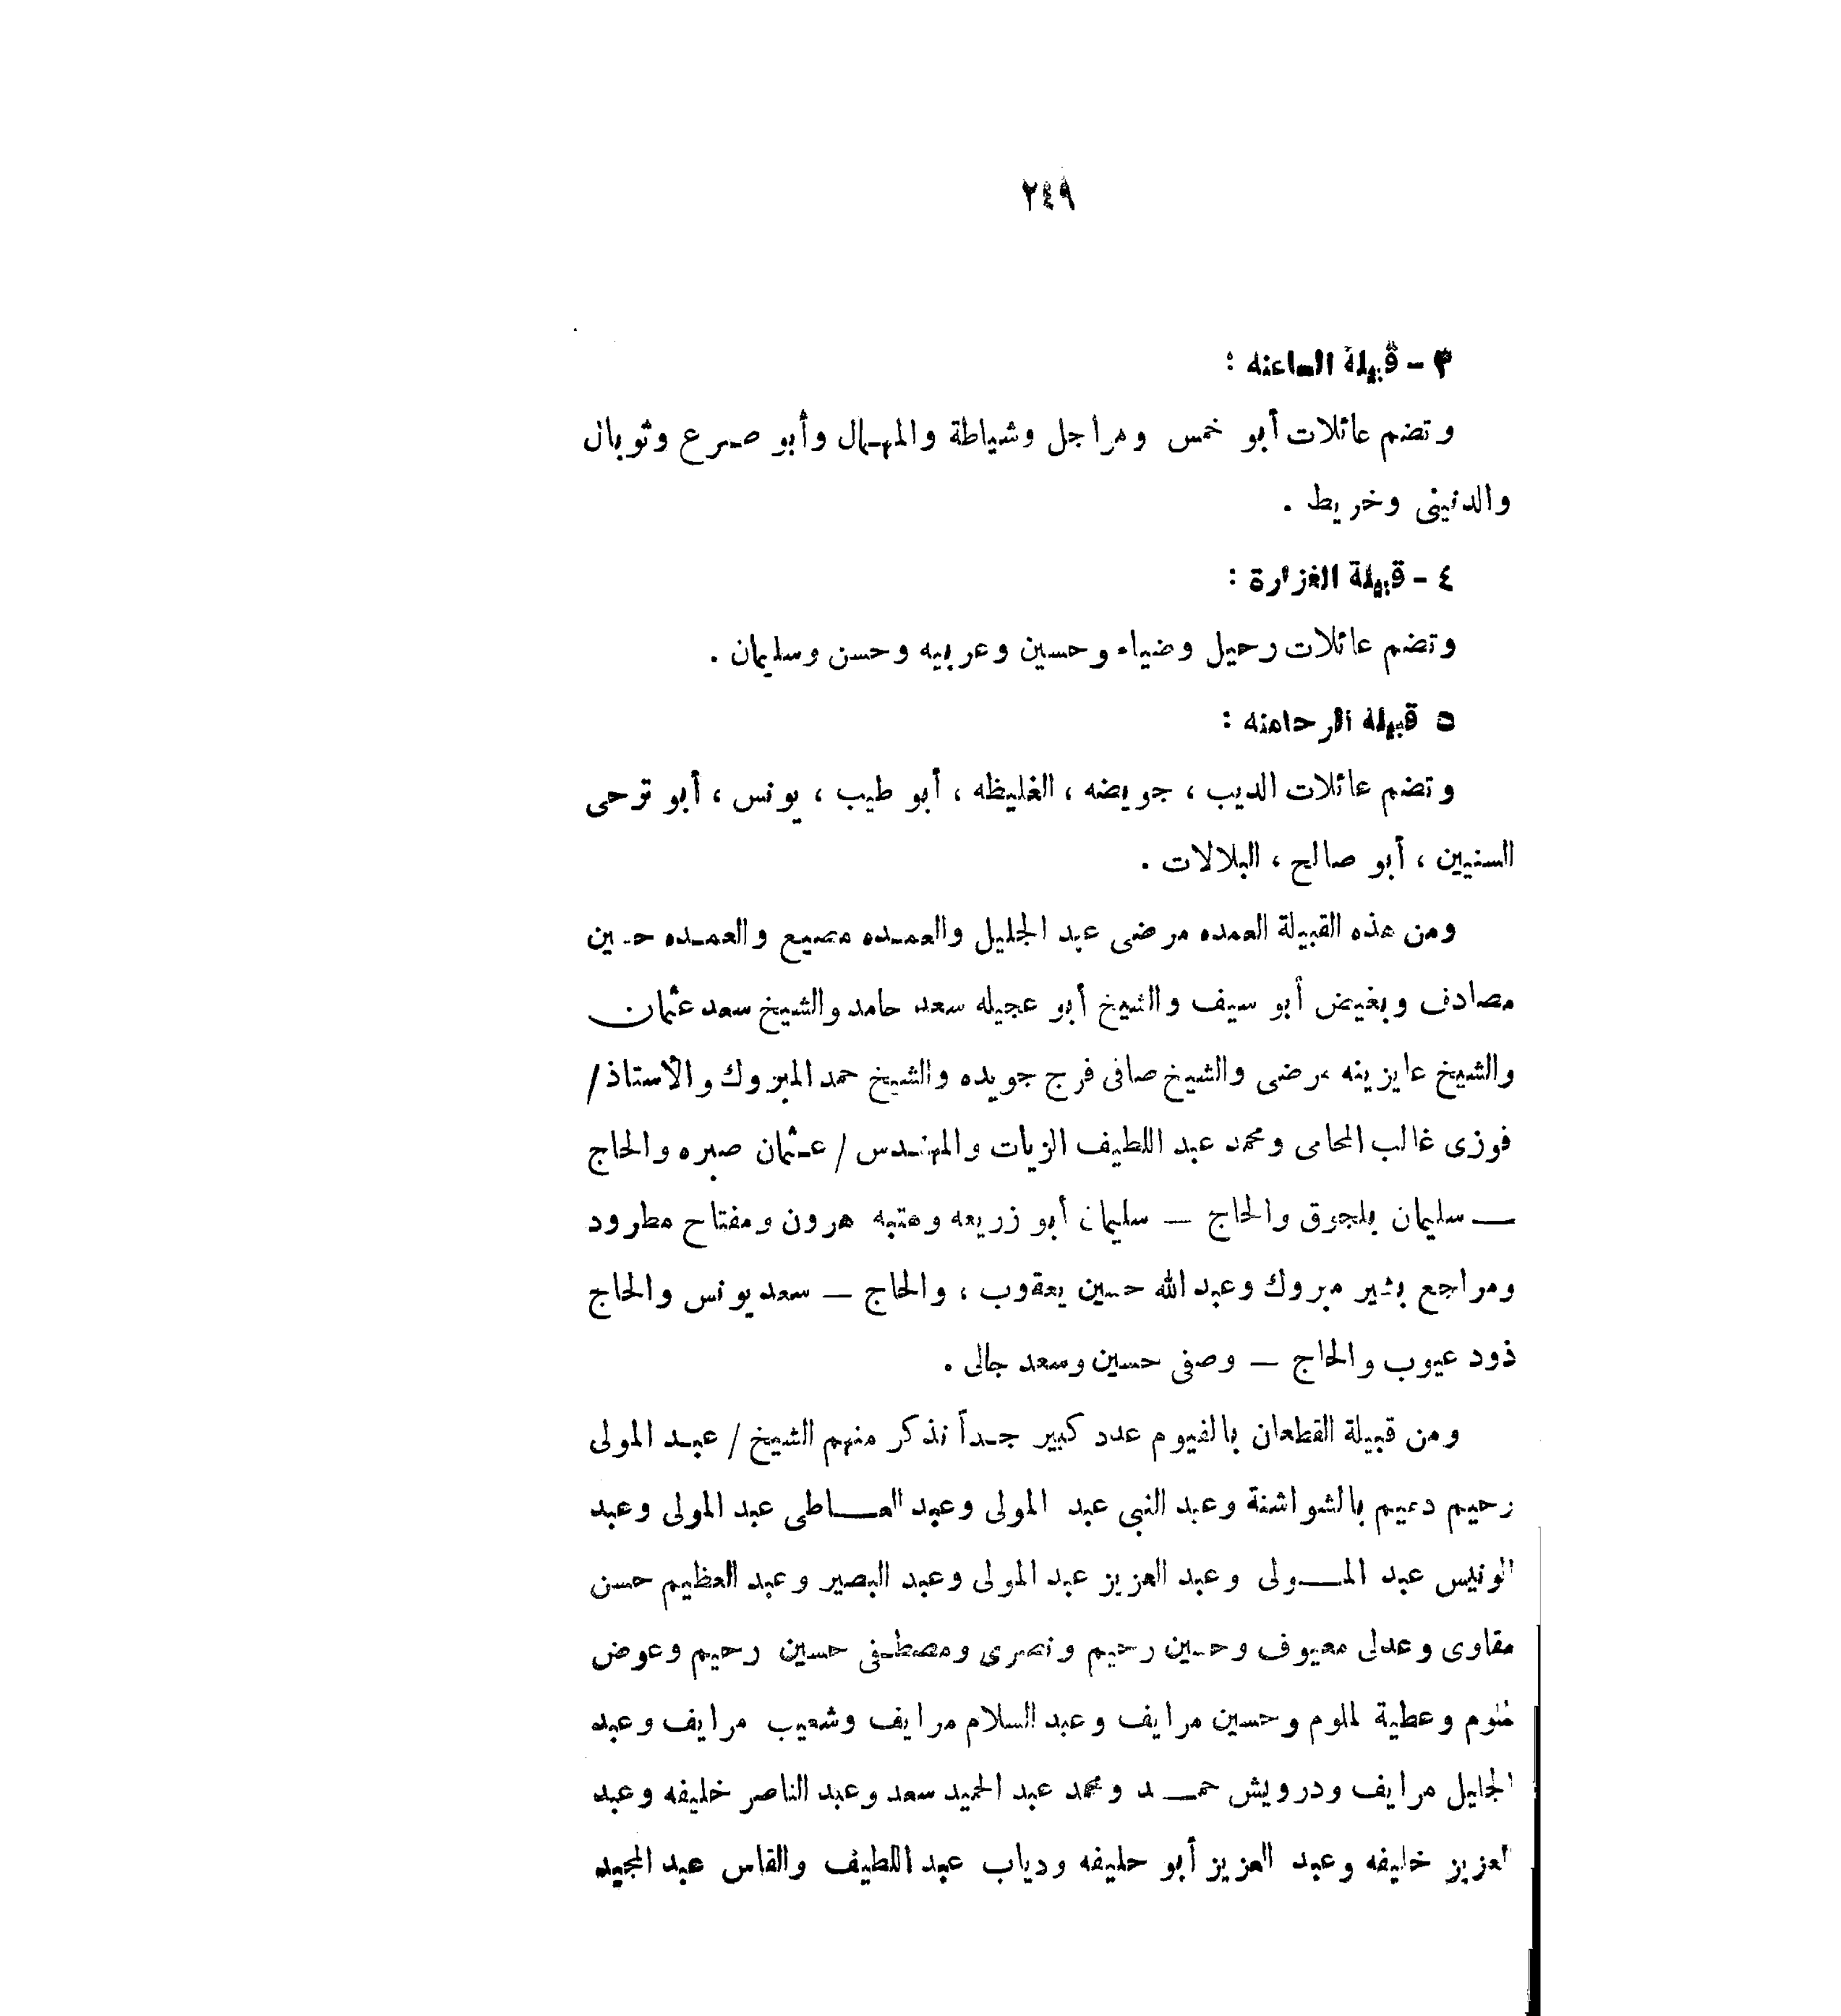 ٢٤٩
٣ - قبيلة الساعنه :
وتضم عائلات أبو خمس ومراجل وشياطة والمهمال وأبو صرع وثوبال
والدنينى وخريط .
٤ - قبيلة الغزارة :
وتضم عائلات رحيل وضياء وحسين وعربيه وحسن وسليمان .
٥ قبيلة الرحامنه :
وتضم عائلات الديب ، جويضه ، الغليظه ، أبو طيب ، يونس ، أبو ترحى
السنيين ، أبو صالح ، البلالات .
ومن هذه القبيلة العمده مرضى عبد الجليل والعمده مصيع والعمده حسين
مصادف وبغيض أبو سيف والشيخ أبو عجيله سعد حامد والشيخ سعد عثمان
والشيخ عايزينه مرضى والشيخ صافى فرج جويده والشيخ حمد المبروك والأستاذ/
فوزى غالب المحامى ومحمد عبد اللطيف الزيات والمهندس / عثمان صبره والحاج
— سليمان بلجوق والحاج — سليمان أبو زريعه وهتبه هرون ومفتاح مطرود
ومراجع بشير مبروك وعبد الله حسين يعقوب ، والحاج — سعد يونس والحاج
ذود عيوب والحاج — وصفى حسين وسعد جالى .
ومن قبيلة القطعان بالفيوم عدد كبير جداً نذكر منهم الشيخ / عبد المولى
رحيم دعيم بالشواشنة وعبد النبى عبد المولى وعبد العاطى عبد المولى وعبد
الونيس عبد المولى وعبد العزيز عبد المولى وعبد البصير وعبد العظيم حسن
مقاوى وعدلى معيوف وحسين رحيم ونصرى ومصطفى حسين رحيم وعوض
وعطية لملوم وحسين مرايف وعبد السلام مرايف وشعيب مرايف وعبد
الجليل مرايف ودرويش حمد ومحمد عبد الحميد سعد وعبد الناصر خليفه وعبد
العزيز خليفه وعبد العزيز أبو حليفه ودياب عبد اللطيف والقاس عبد المجيد